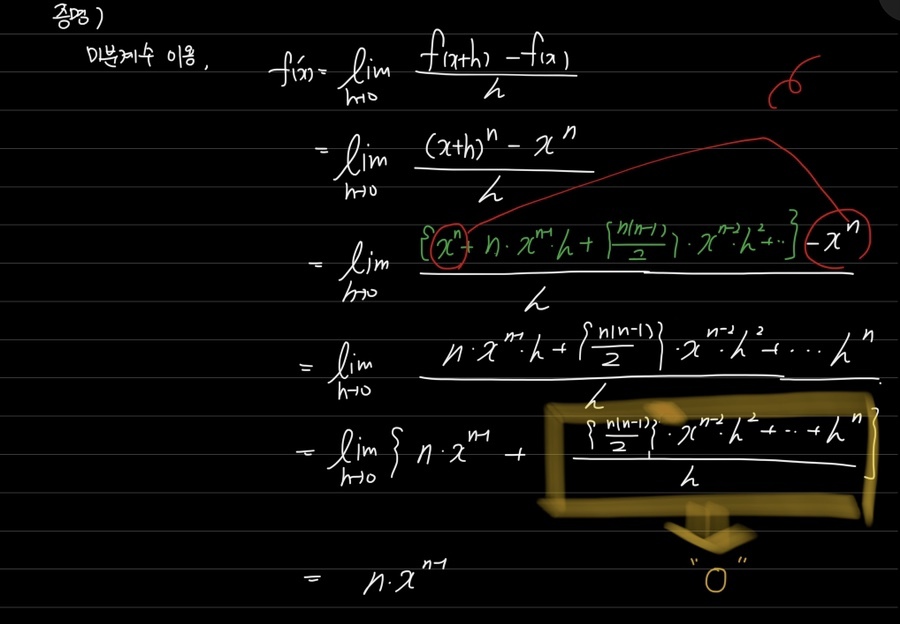 증명)
미분계수 이용,
f'(x) = lim h→0 f(x+h) - f(x) / h
= lim h→0 (x+h)ⁿ - xⁿ / h
= lim h→0 [{xⁿ + n·xⁿ⁻¹·h + {n(n-1)/2}·xⁿ⁻²·h² + ··}] - xⁿ / h
= lim h→0 n·xⁿ⁻¹·h + {n(n-1)/2}·xⁿ⁻²·h² + ··· hⁿ / h
= lim h→0 { n·xⁿ⁻¹ + {n(n-1)/2}·xⁿ⁻²·h² + ·· + hⁿ / h }
"0"
= n·xⁿ⁻¹